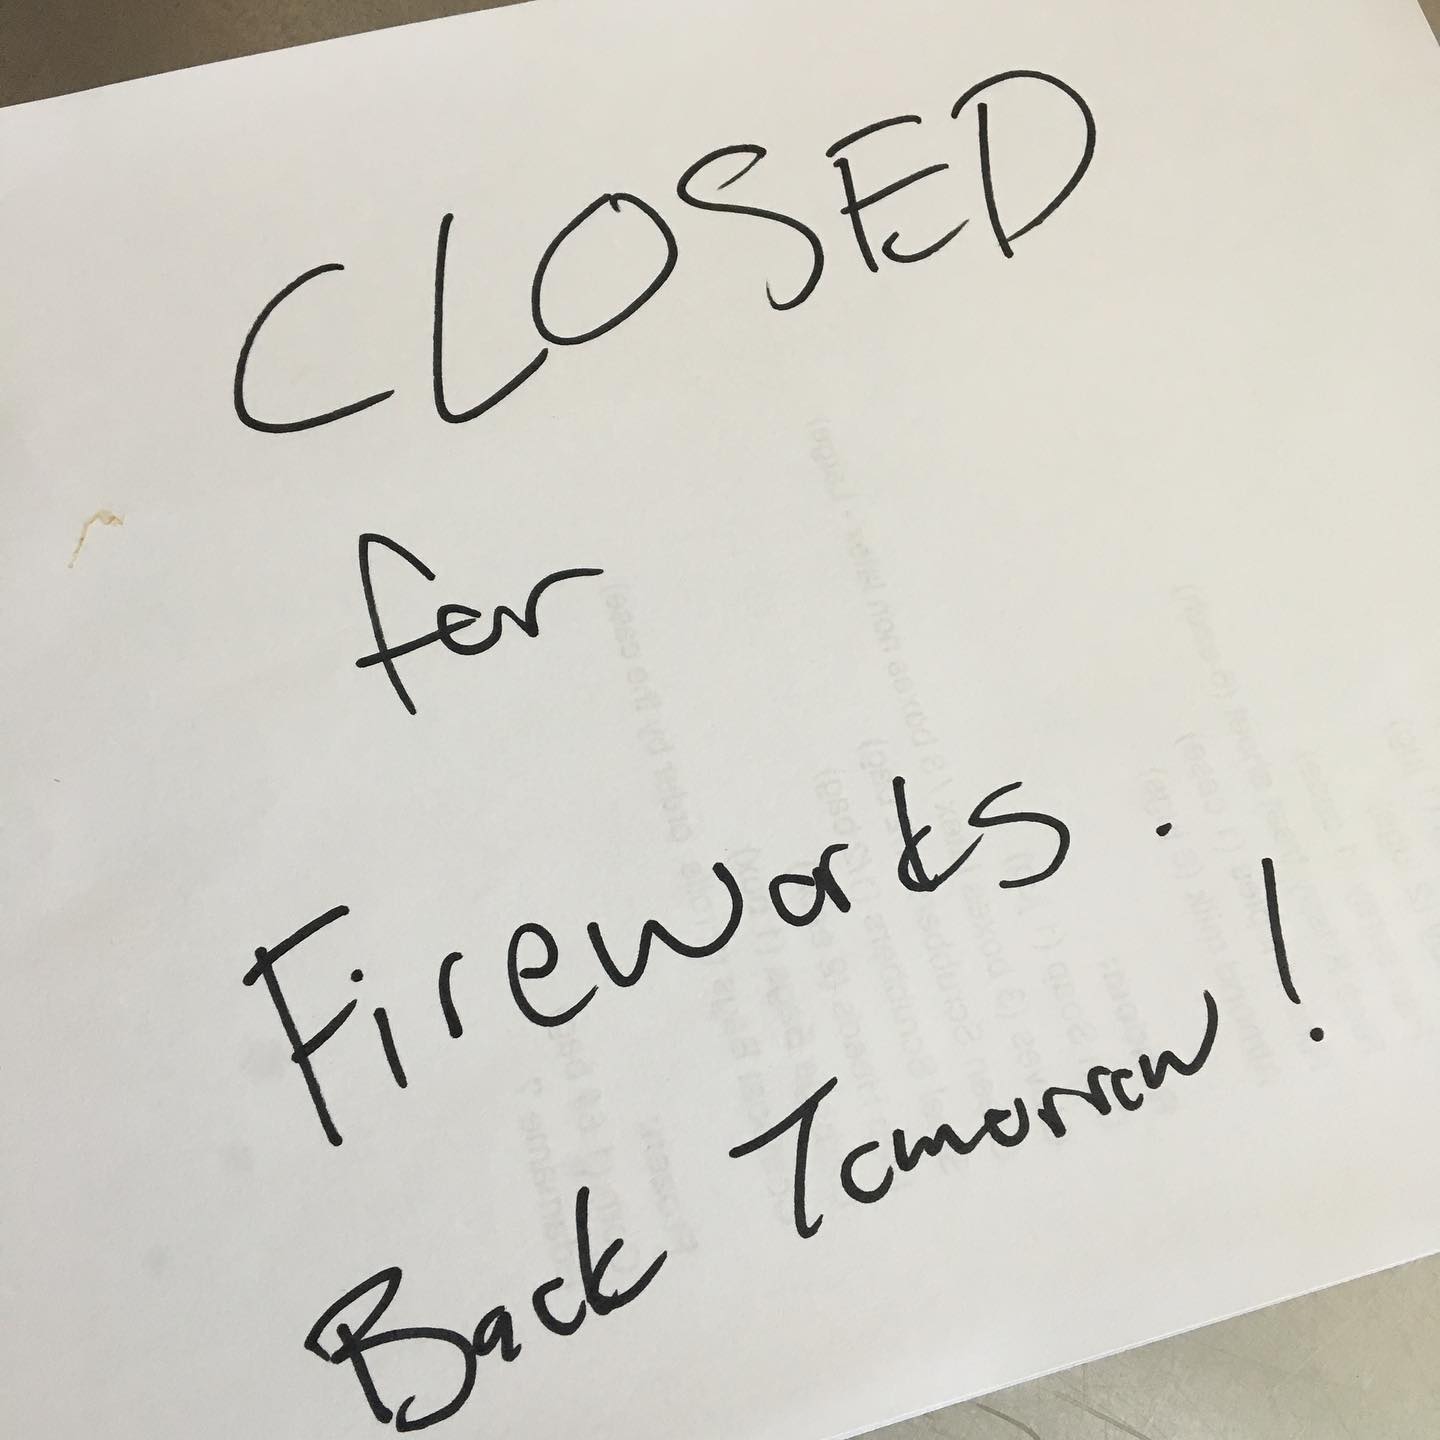 CLOSED
for
Fireworks.
Back Tomorrow!